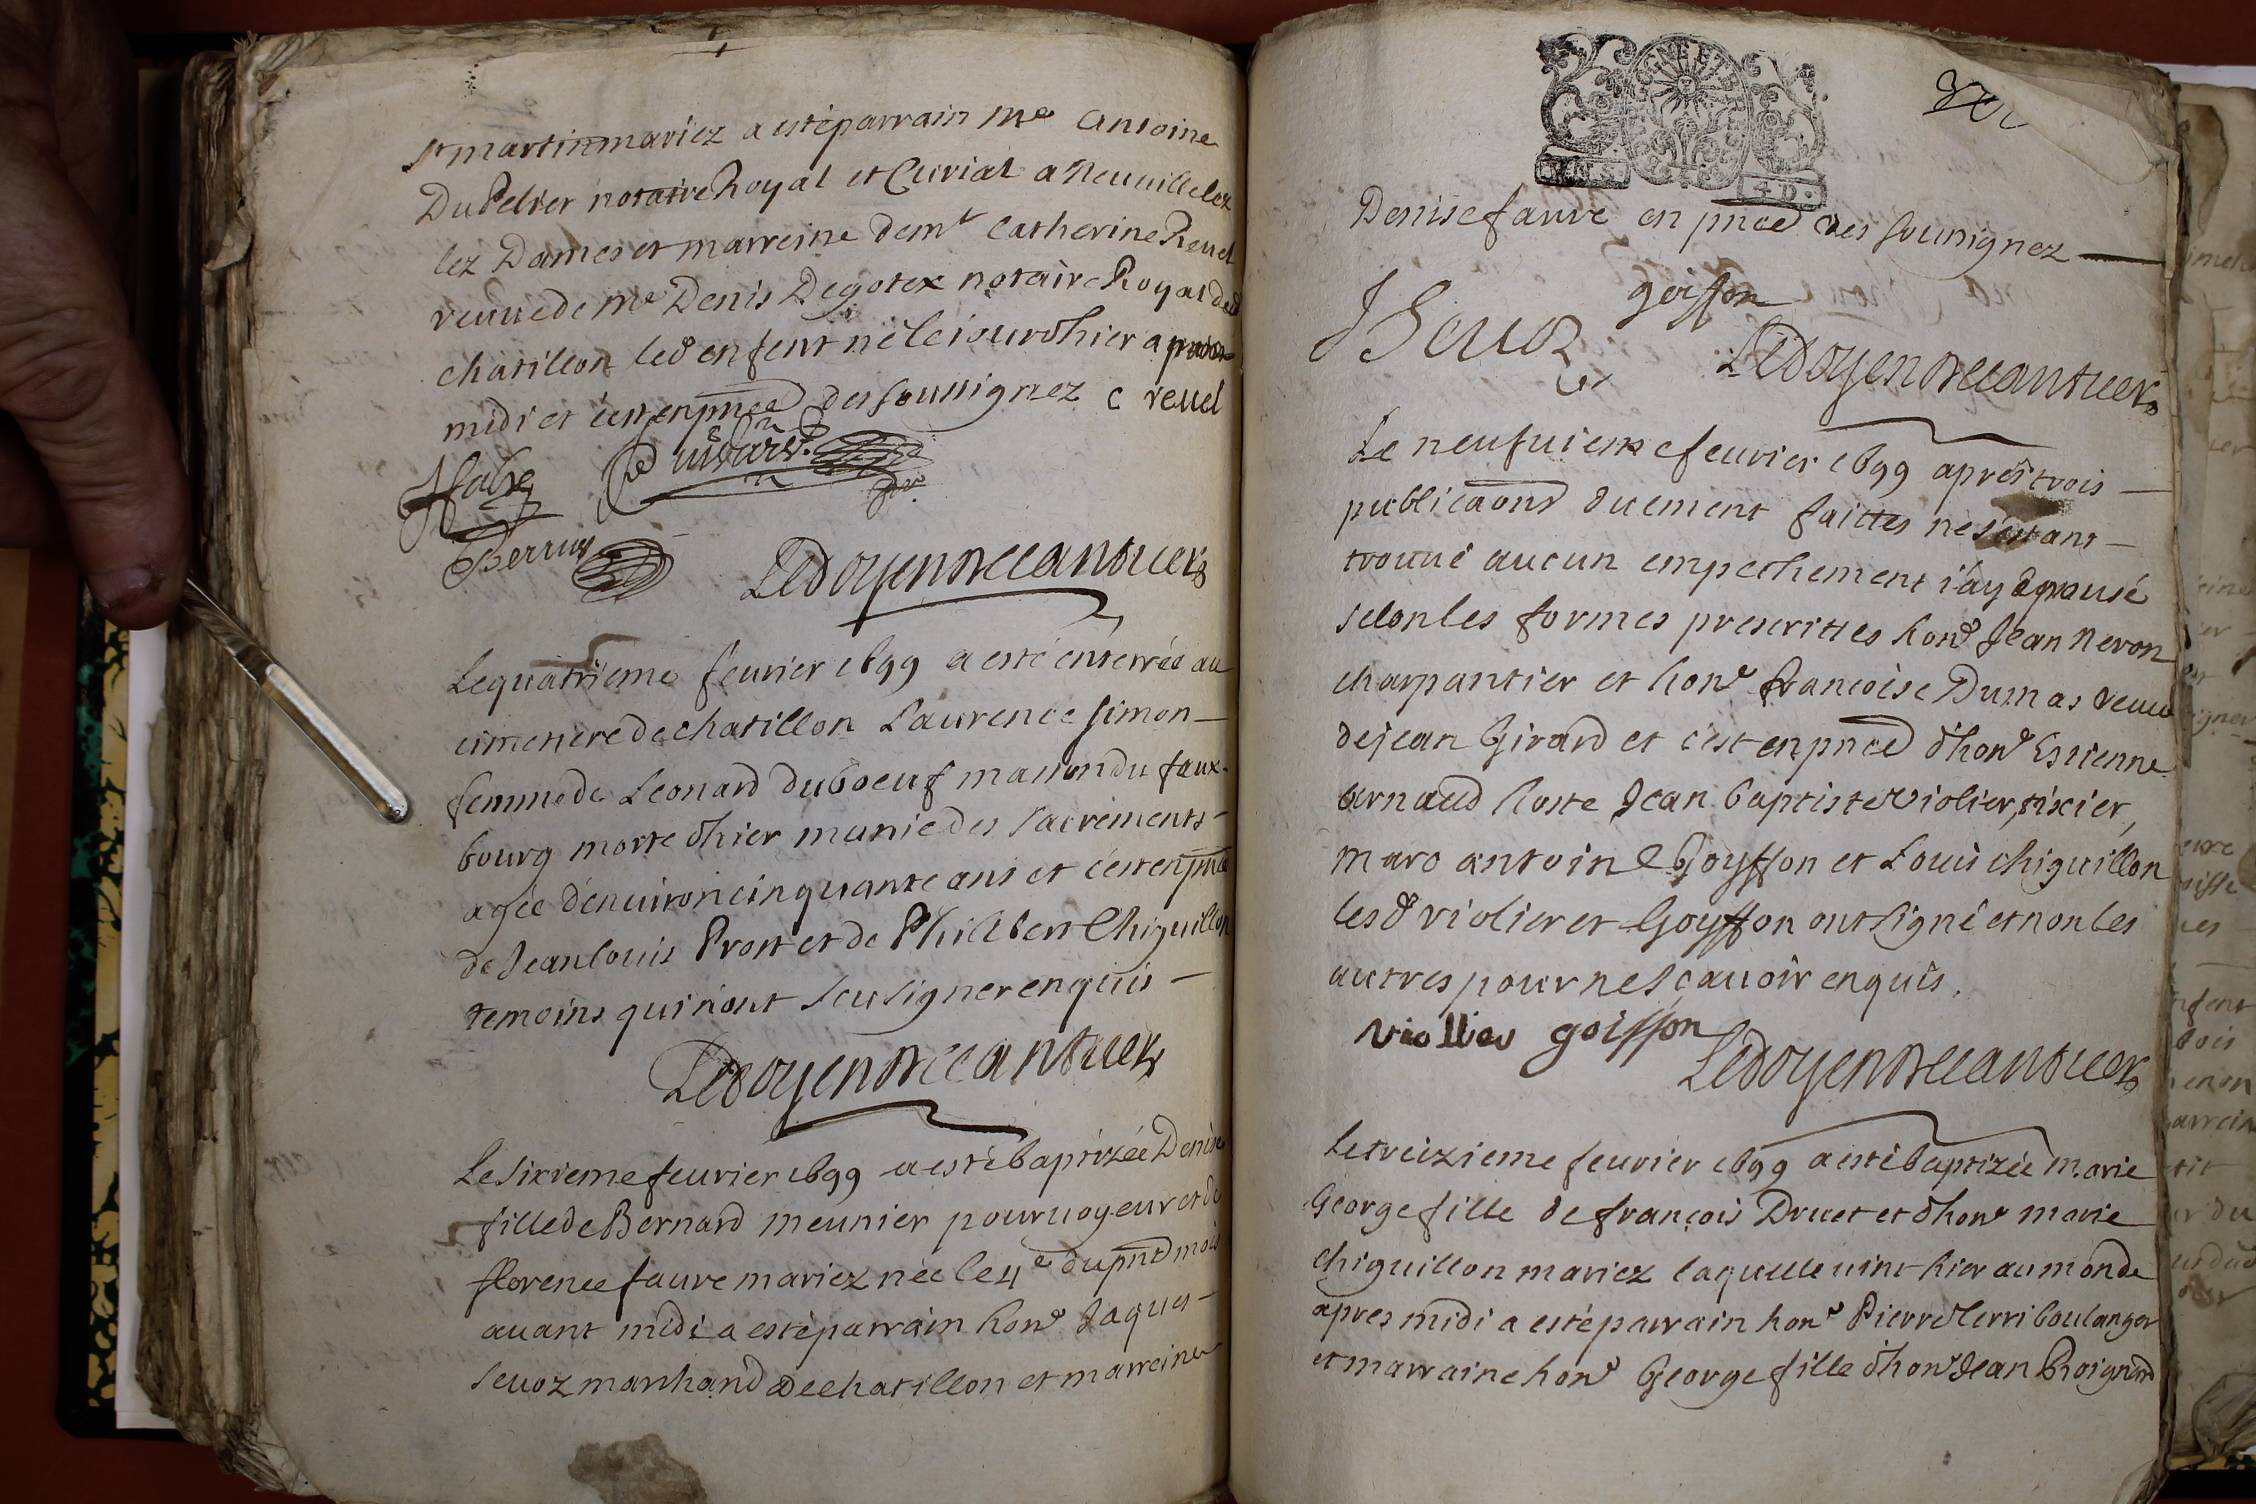 st martin mariez a esté parrain me Antoine
Du Peltier notaire Royal et Curial a Neuuille lez
lez Dames et marreine demlle Catherine Reuel
veuue de Me Denis Degotex notaire Royal dud
chatillon led enfent né le iour d'hier apres
midi et c'est en pnce des soussignez C revel
Berruy
Ledoyen
Le quatrieme feurier 1699 a esté enterrée au
cimetiere de chatillon Laurence simon
femme de Leonard duboeuf masson du faux-
bourg morte d'hier munie des sacrements
agée d'enuiron cinquante ans et c'est en pnce
de Jean louis Prost et de Philibert Chiguillon
temoins qui n'ont sceu signer enquis
Ledoyen
Le sixieme feurier 1699 a esté baptizée Denise
fille de Bernard meunier pouruoyeur et de
florence faure mariez née le 4e du pnt mois
auant midi a esté parrain hone Jaques
Seuoz marchand de chatillon et marreine
GNE ET
4 D.
Denise faure en pnce des soussignez
goisson
J Seuoz
Ledoyen
Le neufuieme feurier 1699 aprés trois
publicaons duement faittes ne s'estant
trouué aucun empechement i'ay epousé
selon les formes prescrittes hone Jean neron
charpantier et hone francoise Dumas veuue
de jean Girard et c'est en pnce d'hone Estienne
arnaud hoste Jean baptiste violier, tixier,
marc antoine Goyffon et Louis chiguillon
lesd violier et Goyffon ont signé et non les
autres pour ne sçauoir enquis.
viollier goisson
Ledoyen
Le treizieme feurier 1699 a esté baptizée marie
George fille de françois Druet et d'hone marie
Chiguillon mariez laquelle vint hier au monde
apres midi a esté parrain hone Pierre Terri boulanger
et marraine hone George fille d'hone Jean Roignard